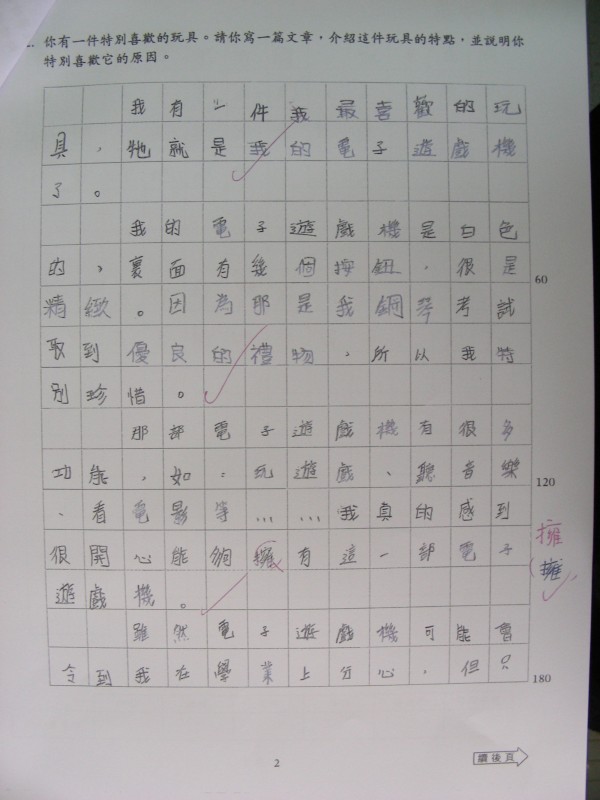 2. 你有一件特別喜歡的玩具。請你寫一篇文章，介紹這件玩具的特點，並說明你
特別喜歡它的原因。
我有一件我最喜歡的玩
具，牠就是我的電子遊戲機
了。
我的電子遊戲機是白色
的，裏面有幾個按鈕，很是
60
精緻。因為那是我鋼琴考試
取到優良的禮物，所以我特
別珍惜。
那部電子遊戲機有很多
功能，如：玩遊戲、聽音樂
120
、看電影等……我真的感到
很開心能夠擁有這一部電子
擁
(擁
遊戲機。
雖然電子遊戲機可能會
令到我在學業上分心，但只
180
續後頁
2